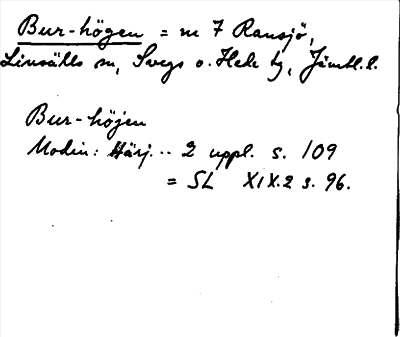 Bur-högen = m 7 Ransjö,
Linsälls sn, Svegs o. Hede tg, Jämtl. l.
Bur-höjen
Modin: Härj... 2 uppl. s. 109
= SL XIX.2 s. 96.